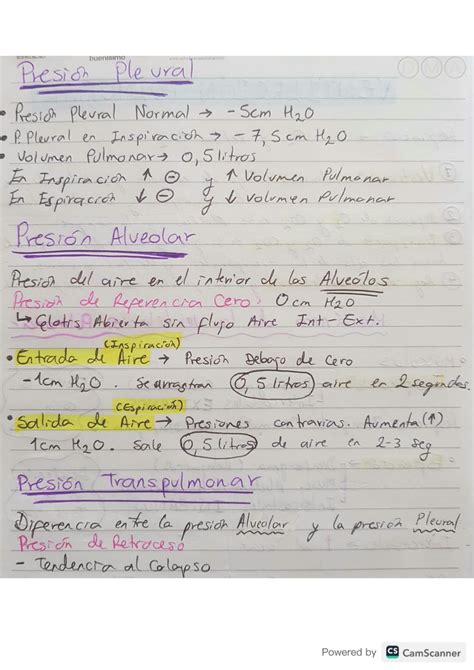 buenísimo
Presión Pleural
• Presión Pleural Normal → - 5cm H2O
• P. Pleural en Inspiración → - 7,5 cm H2O
• Volumen Pulmonar → 0,5 litros
En Inspiración ↑ ⊖ y ↑ Volumen Pulmonar
En Espiración ↓ ⊖ y ↓ Volumen Pulmonar
Presión Alveolar
Presión del aire en el interior de los Alveólos
Presión de Referencia Cero: 0cm H2O
↳ Glotis Abierta sin flujo Aire Int - Ext.
(Inspiración)
• Entrada de Aire → Presión Debajo de Cero
-1cm H2O. Se arrastran 0,5 litros aire en 2 segundos.
(Espiración)
• Salida de Aire → Presiones contrarias. Aumenta (↑)
1cm H2O. Sale 0,5 litros de aire en 2-3 seg
Presión Transpulmonar
Diferencia entre la presión Alveolar y la presión Pleural
Presión de Retroceso
- Tendencia al Colapso
Powered by CS CamScanner